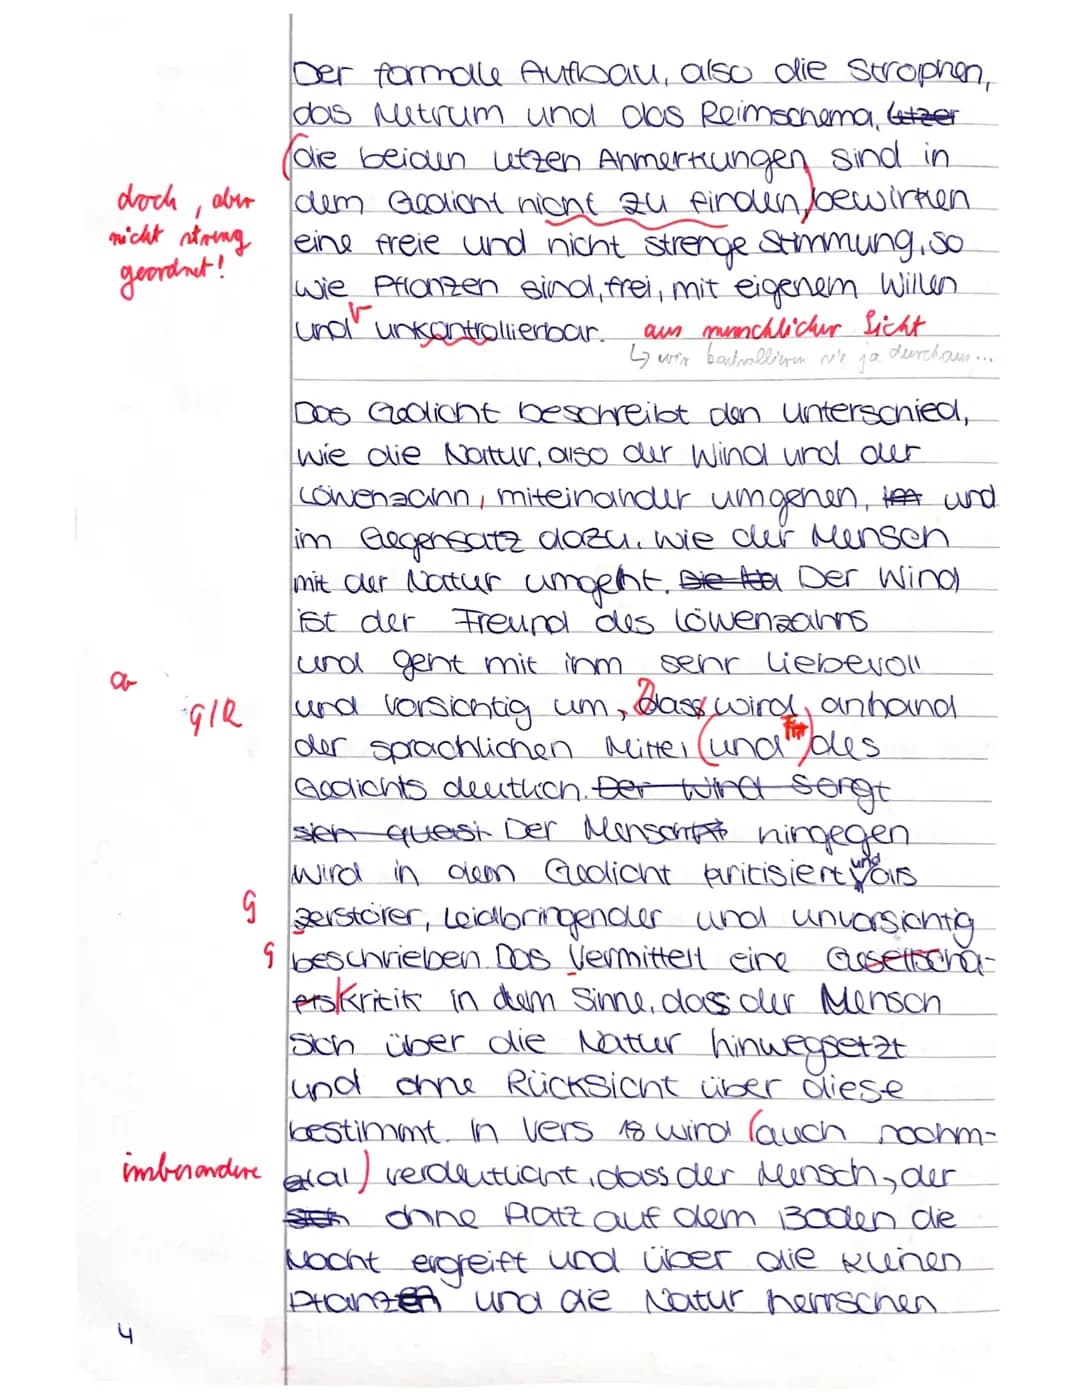 Der formale Aufbau, also die Strophen,
das Metrum und das Reimschema, letzer
(die beiden letzen Anmerkungen sind in
doch, aber dem Gedicht nicht zu finden) bewirken
nicht streng eine freie und nicht strenge Stimmung, so
geordnet! wie Pflanzen sind, frei, mit eigenem Willen
und unkontrollierbar. aus menschlicher Sicht
↳ wir kontrollieren sie ja durchaus...
Das Gedicht beschreibt den unterschied,
wie die Natur, also der Wind und der
Löwenzahn, miteinander umgehen, im und
im Gegensatz dazu, wie der Mensch
mit der Natur umgeht. Die Na Der Wind
ist der Freund des Löwenzahns
und geht mit ihm sehr liebevoll
und vorsichtig um, dass wird, anhand
G/R der sprachlichen Mittel (und) des
Gedichts deutlich. Der Wind sorgt
sich quasi Der Mensch hingegen
wird in dem Gedicht kritisiert und als
G zerstörer, Leidbringender und unvorsichtig
G beschrieben. Das Vermittelt eine Gesellscha-
Kritik in dem Sinne, dass der Mensch
sich über die Natur hinwegsetzt
und ohne Rücksicht über diese
bestimmt. In Vers 18 wird (auch nochm-
insbesondere al) verdeutlicht, dass der Mensch, der
sich ohne Platz auf dem Boden die
Macht ergreift und über die kleinen
Pflanzen und die Natur herrschen
4